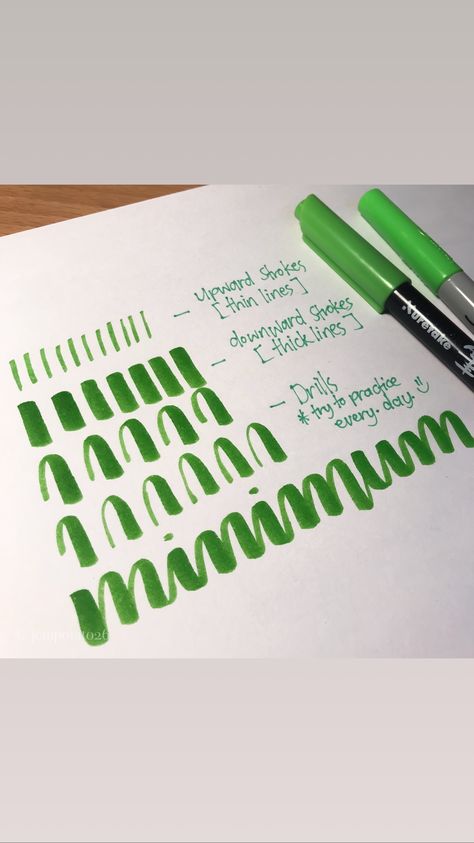 — upward strokes
[thin lines]
— downward strokes
[thick lines]
— Drills
* try to practice
every day. :)
minimum
Suretake